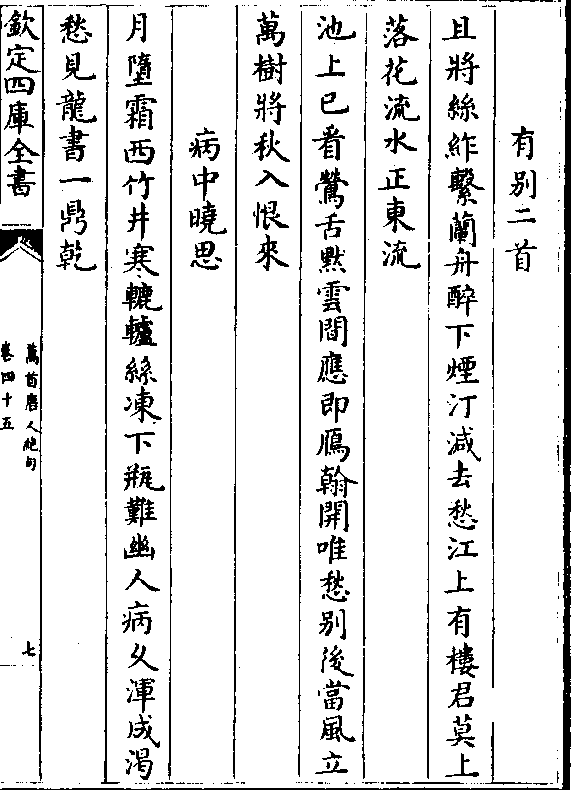 有别二首
且將絲䊏繫蘭舟醉下煙汀減去愁江上有樓君莫上
落花流水正東流
池上已看鶯舌黙雲間應即鴈翰開唯愁别後當風立
萬樹將秋入恨來
病中曉思
月墮霜西竹井寒轆轤絲凍下瓶難幽人病久渾成渴
愁見龍書一鼎乾
欽定四庫全書
萬首唐人絶句
卷四十五
七